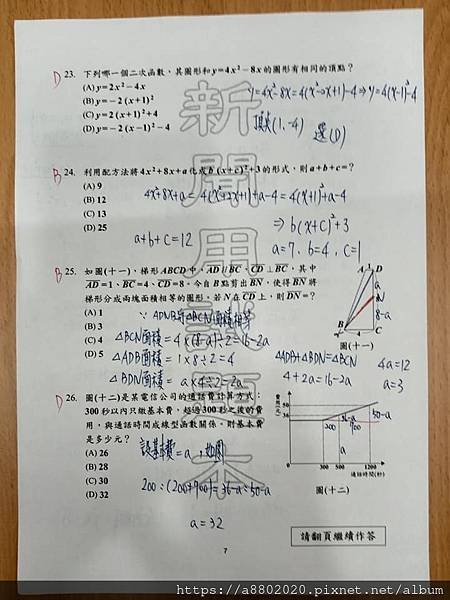 D 23. 下列哪一個二次函數，其圖形和y=4x²-8x的圖形有相同的頂點？
(A) y=2x²-4x
(B) y=-2(x+1)²
(C) y=2(x+1)²+4
(D) y=-2(x-1)²-4
y=4x²-8x=4(x²-2x+1)-4⇒y=4(x-1)²-4
頂點(1,-4) 選(D)
B 24. 利用配方法將4x²+8x+a化成b(x+c)²+3的形式，則a+b+c=？
(A) 9
(B) 12
(C) 13
(D) 25
4x²+8x+a=4(x²+2x+1)+a-4=4(x+1)²+a-4
⇒b(x+c)²+3
a=7、b=4、c=1
a+b+c=12
B 25. 如圖(十一)，梯形ABCD中，AD∥BC、CD⊥BC，其中
AD=1、BC=4、CD=8。今自B點剪出BN，使得BN將
梯形分成兩塊面積相等的圖形。若N在CD上，則DN=？
(A) 1
(B) 3
(C) 4
(D) 5
∵ADNB和△BCN面積相等
△BCN面積=4×(8-a)÷2=16-2a
△ADB面積=1×8÷2=4
△BDN面積=a×4÷2=2a
△ADB+△BDN=△BCN
4+2a=16-2a
4a=12
a=3
A 1 D
a
N
8-a
B 4 C
圖(十一)
D 26. 圖(十二)是某電信公司的通話費計算方式：
300秒以內只繳基本費，超過300秒之後的費
用，與通話時間成線型函數關係。則基本費
是多少元？
(A) 26
(B) 28
(C) 30
(D) 32
設基本費=a，如圖
200÷(200+700)=36-a÷50-a
a=32
50
36
36-a
50-a
200 700
a
300 500 1200
通話時間(秒)
圖(十二)
請翻頁繼續作答
7
新聞用試題本
https://a8802020.pixnet.net/album